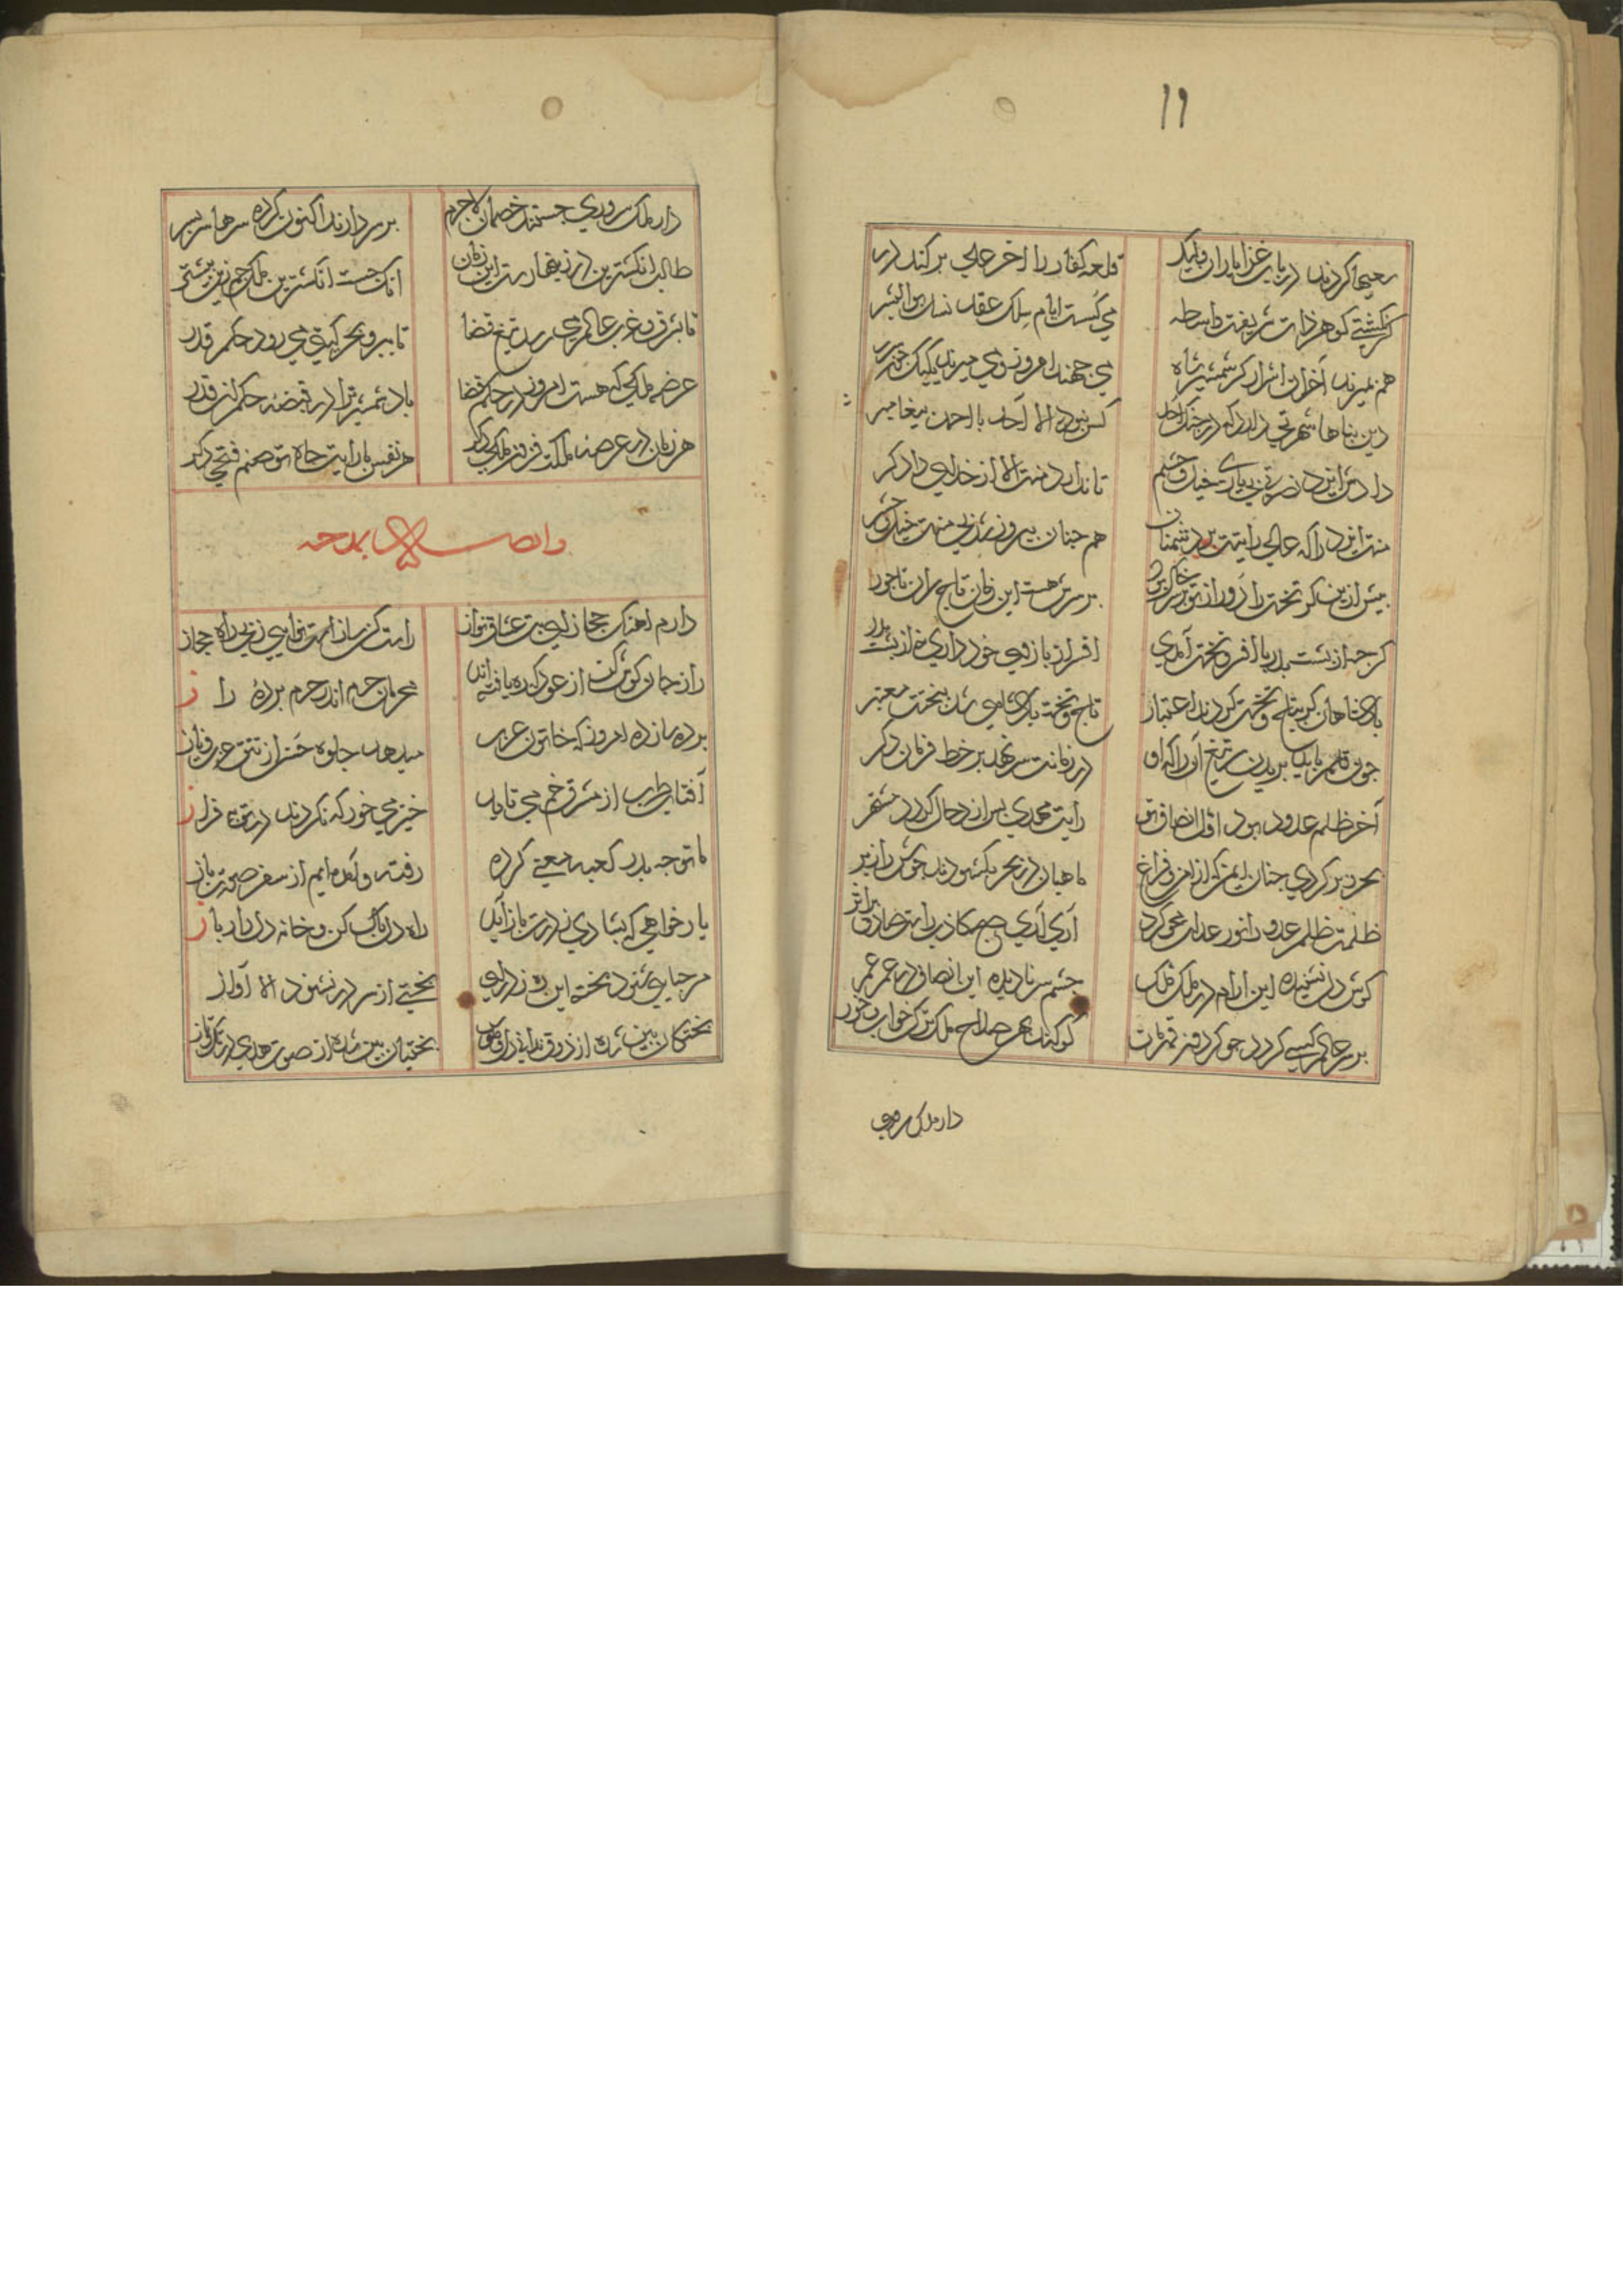 ۱۱
سعیها کردند در باب غزا یاران ولیک
قلعه کفار را آخر علی برکند در
گر نگشتی گوهر ذات شریفت واسطه
می گسست ایام سلک عقد نسل بوالبشر
هم نمیرند آخر آن اشرار کز شمشیر شاه
می جهند امروز و می میرند یکیک چون شرر
دین پناها شهرتی دارد که در جنگ احد
کس نبود الا احد با احمد پیغامبر
داد دین ایزد نصرتی بی یاری خیل و حشم
تا ندارد منت الا از خدای دادگر
منت ایزد را که عالی رایتت بر دشمنان
هم چنان پیروز شد بی منت خیل و حشر
پیش ازین گر تخت را زور از تو بر سر خاک بود
بر سرش هست این زمان تاج سران تاجور
گر چه از پشت پدر با افر و تخت آمدی
افر از بازوی خود داری نه از پشت پدر
پادشاهان گر بتاج و تخت کردند اعتبار
تاج و تخت پادشاهی شد ببختت معتبر
چون قلم باید بریدن سر بتیغ آنرا که او
در زمانت سر نهد بر خط فرمان دگر
آخر ظلم عدو بود اول انصاف تو
رایت مهدی پس از دجال گردد مشتهر
بحر و بر کردی چنان ایمن که از امن و فراغ
ماهیان در بحر بگشودند جوشن را ز بر
ظلمت ظلم عدو را نور عدلت محو کرد
آری آری صبح کاذب راست صادق بر اثر
گوش دل نشنیده این آرام در ملک فلک
چشم سر نادیده این انصاف در عمر عمر
بر سر عالم کسی گردد چو گردون زمانت
کو کند بهر صلاح ملک ترک خواب و خور
دار ملک سروری
دار ملک سروری جستند خصمان لاجرم
بر سر دارند اکنون کرده سرها سربسر
طالب انگشترین در زینهارست این زمان
آنک جست انگشترین ملک جم زین پیشتر
تا بشرق و غرب عالم می رسد تیغ قضا
تا ببر و بحر گیتی می رود حکم قدر
عرضه ملکی که هست امروز در حکم قضا
باد شمشیر ترا در قبضه حکم قدر
هر زمان در عرصه ملکت فزون ملکی دگر
هر نفس با رایت جاه تو منضم فتحی دگر
وله ایضا یمدحه
دارم آهنگ حجاز ای بت عشاق نواز
راست کن ساز و نوایی ز پی راه حجاز
راز جان گوش کن از عود که ره یافته اند
محرمان حرم اندر حرم پرده راز
پرده ساز ده امروز که خاتون عرب
میدهد جلوه حسن از تتق عز و ناز
آفتاب طرب از مشرق خم می تابد
خیز می خور که نکردند در توبه فراز
ما توجه بدر کعبه معنی کرده
رفته و آمده ایم از سفر صورت باز
یار خواهی که بشادی ز درت باز آید
راه دل پاک کن و خانه دل در باز
مرحبا می شنود پخته این ره ز درای
بختی از سر در نشنود الا آواز
پختگان بین شده از ذوق ندای دل
بختیان بین شده از صوت هدی در تک و تاز